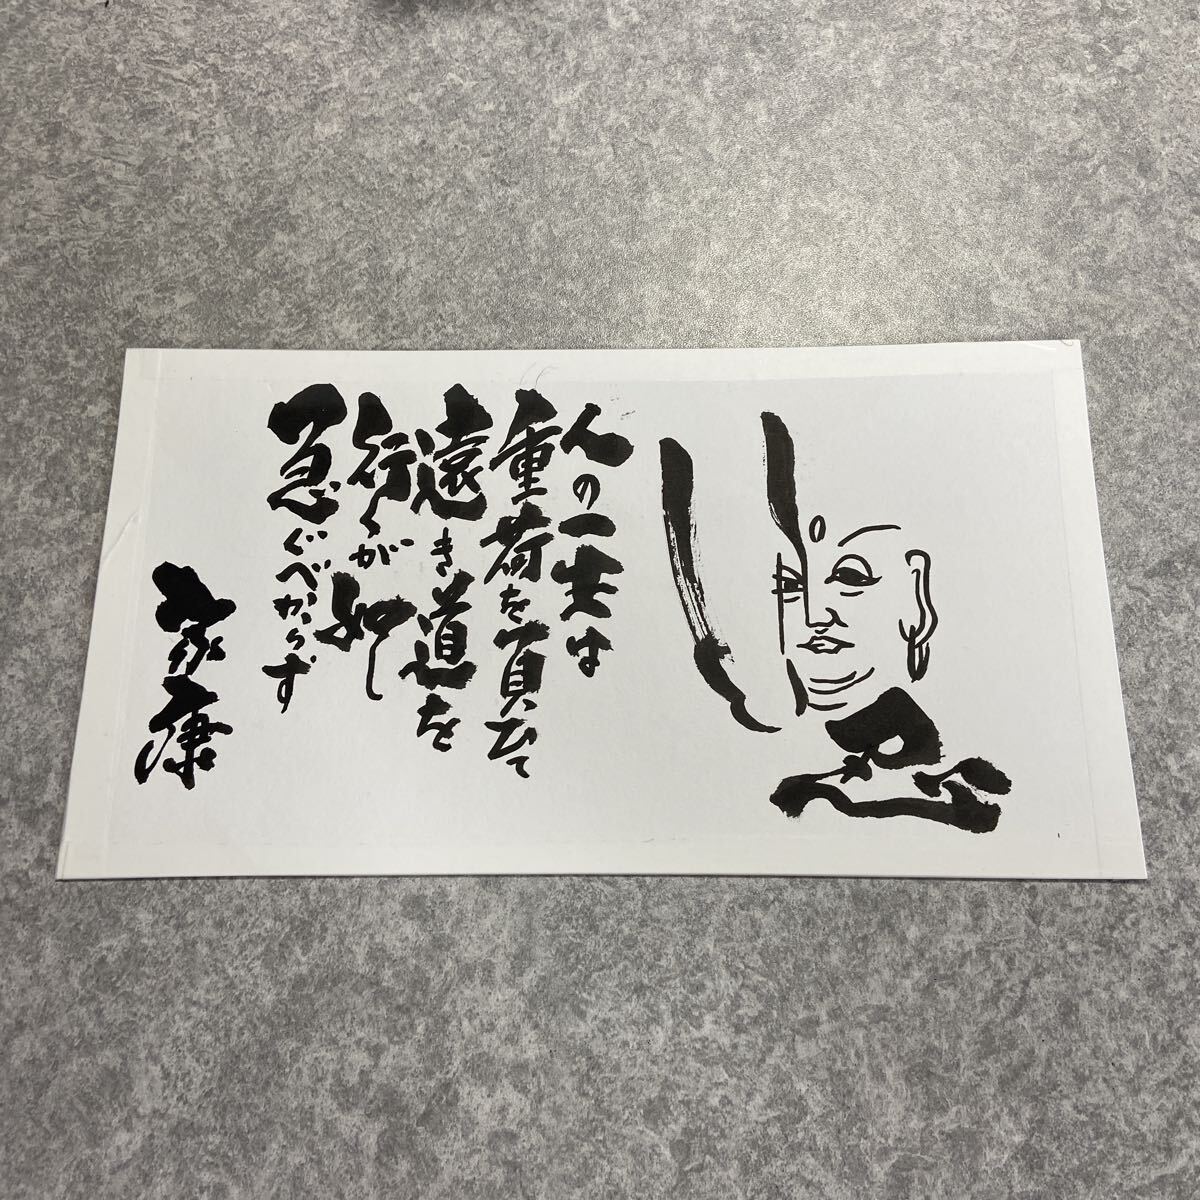 忍
人の一生は
重荷を負ひて
遠き道を
行くが如し
急ぐべからず
家康